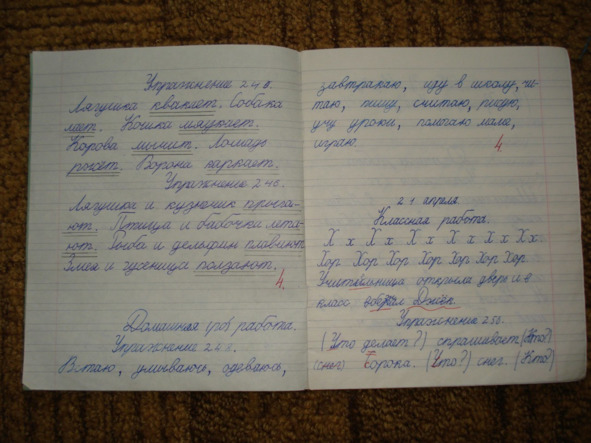 Упражнение 248.
Лягушка квакает. Собака
лает. Кошка мяукает.
Корова мычит. Лошадь
рычет. Ворона каркает.
Упражнение 246.
Лягушка и кузнечик прыга-
ют. Птица и бабочка лета-
ют. Рыба и дельфин плавают.
Змея и гусеница ползают.
4.
Домашняя работа.
Упражнение 24
Встаю, умываюсь, одеваюсь,
завтракаю, иду в школу, чи-
таю, пишу, считаю, рисую,
учу уроки, помогаю маме,
играю.
4.
21 апреля.
Классная работа.
Х х Х х Х х Х х Х х Х х
Хор Хор Хор Хор Хор Хор Хор
Учительница открыла дверь и в
класс вбежал Джек.
Упражнение 250.
(Что делает?) спрашивает (Кто?)
(снег) Сорока. (Что?) снег. (Кто?)